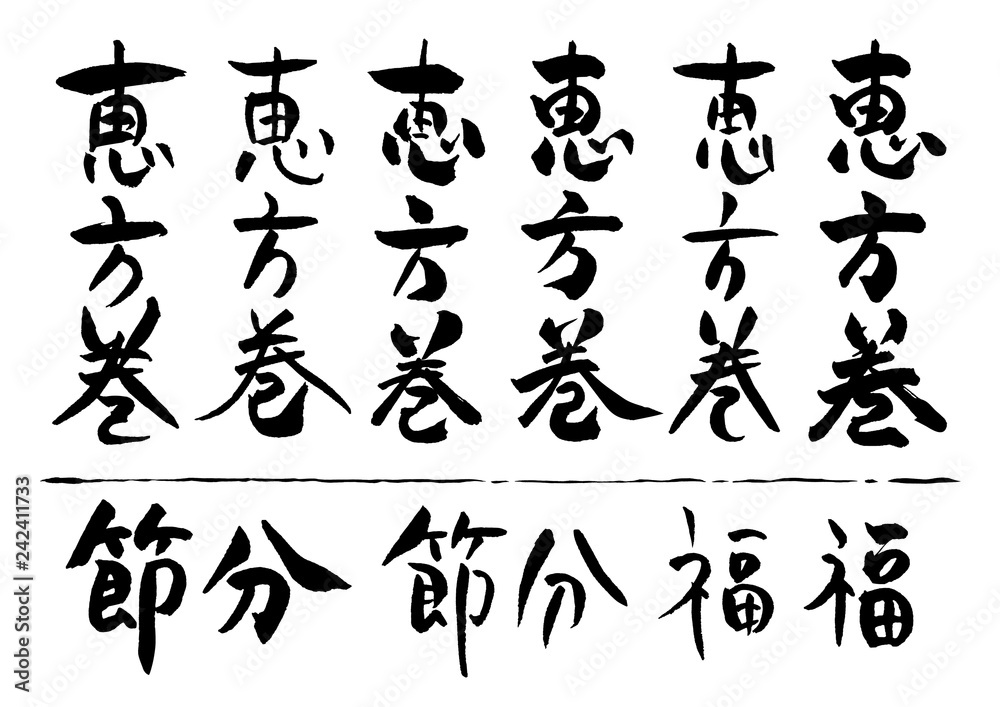 恵方巻
恵方巻
恵方巻
恵方巻
恵方巻
恵方巻
節分
節分
福
福
Adobe Stock | #242411733